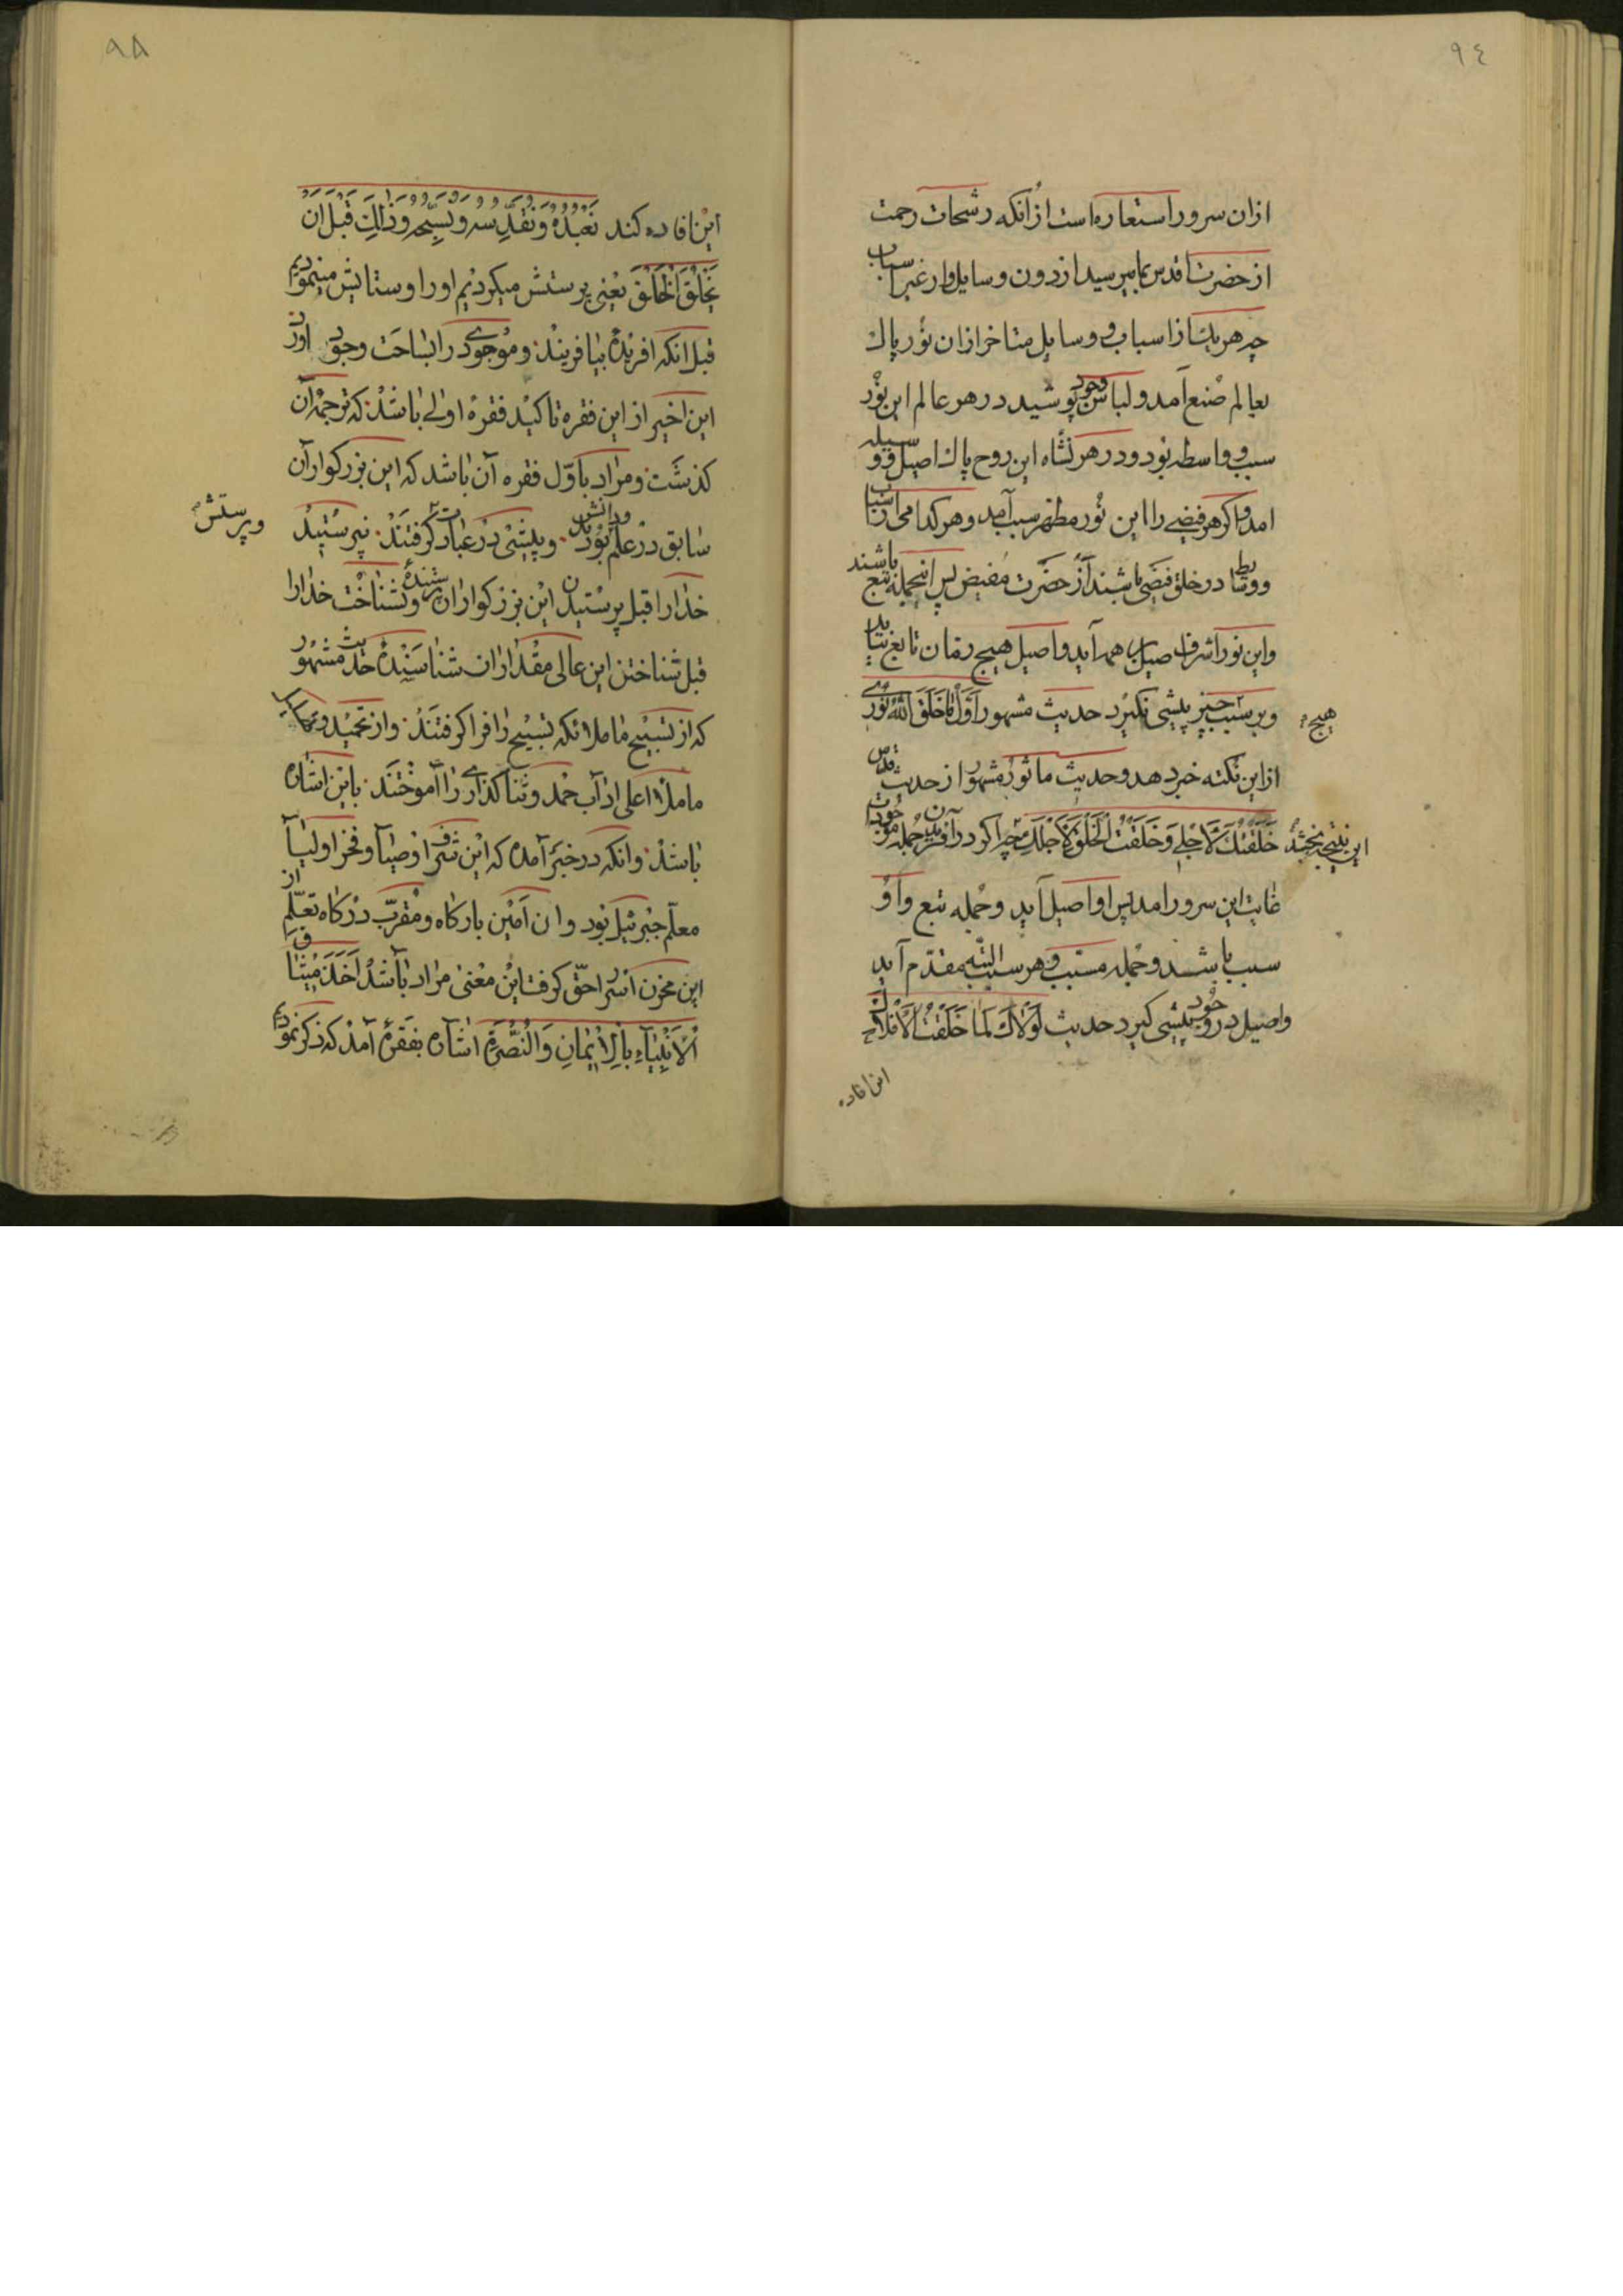 ٩٤
ازان سرور استعاره است ازانکه رشحات رحمت
از حضرت اقدس بما میرسید از دون وسایل و از غیر اسباب
چه هریک از اسباب و وسایل متاخر ازان نور پاک
بعالم صنع آمد و لباس وجود پوشید در هر عالم این نور
سبب و واسطه بود و در هر نشاه این روح پاک اصیل و وسیله
امد و اکر هر فیضی را این نور مظهر سبب آمد و هر کدام
در خلق فیضی باشند از حضرت مفیض پس اینجمله تبع باشند
و این نور اشرف اصیل همه آید و اصیل هیچ زمان تابع نیاید
و بر سبب چیز پیشی نکیرد حدیث مشهور اَوَّلُ ما خَلَقَ اللّٰهُ نُوري
هیچ
از این نکته خبر دهد و حدیث ماثور مشهور از حدیث قدس
این نتیجه بخشد خَلَقْتُكَ لِاَجْلي وَخَلَقْتُ الْخَلْقَ لِاَجْلِكَ چه اکر در آفریدن جمله موجودات
غایت این سرور امد پس او اصیل آید و جمله تبع و او
سبب باشد و جمله مسبب و هر سبب البته مقدم آید
و اصیل در وجود پیشی کیرد حدیث لَوْلاكَ لَمَا خَلَقْتُ الْاَفْلاكَ
این افاده
٩٥
این افاده کند نَعْبُدُهُ وَنُقَدِّسُهُ وَنُسَبِّحُهُ وَذٰلِكَ قَبْلَ اَنْ
يَخْلُقَ الْخَلْقَ یعنی پرستش میکردیم او را و ستایش مینمودیم
قبل انکه افریدهٔ بیافریند و موجودی را بساحت وجود اورد
این اخیر از این فقره تاکید فقرهٔ اولی باشد که ترجمهٔ آن
کذشت و مراد باوّل فقره آن باشد که این بزرکواران
سابق در علم و دانش بودند و پیشی در عبادت کرفتند نپرستید
و پرستش
خدا را قبل پرستیدن این بزرکواران پرستندهٔ و نشناخت خدا را
قبل شناختن این عالی مقداران شناسندهٔ حدیث مشهور
که از تسبیح ما ملائکه تسبیح را فرا کرفتند و از تحمید و
ما ملأ اعلی اداب حمد و ثنا کذاری را آموختند باین اشاره
باشد و انکه در خبر آمده که این شرف اوصیا و فخر اولیا
معلم جبرئیل بود و ان امین بارکاه و مقرب درکاه تعلّم از
این مخزن اسرار حق کرفت این معنی مراد باشد اَخَذَ مِيثَاقَ
الْاَنْبِيَاءِ بِالْاِيْمَانِ وَالنُّصْرَةِ اشاره بفقرهٔ آمد که ذکر نمودیم